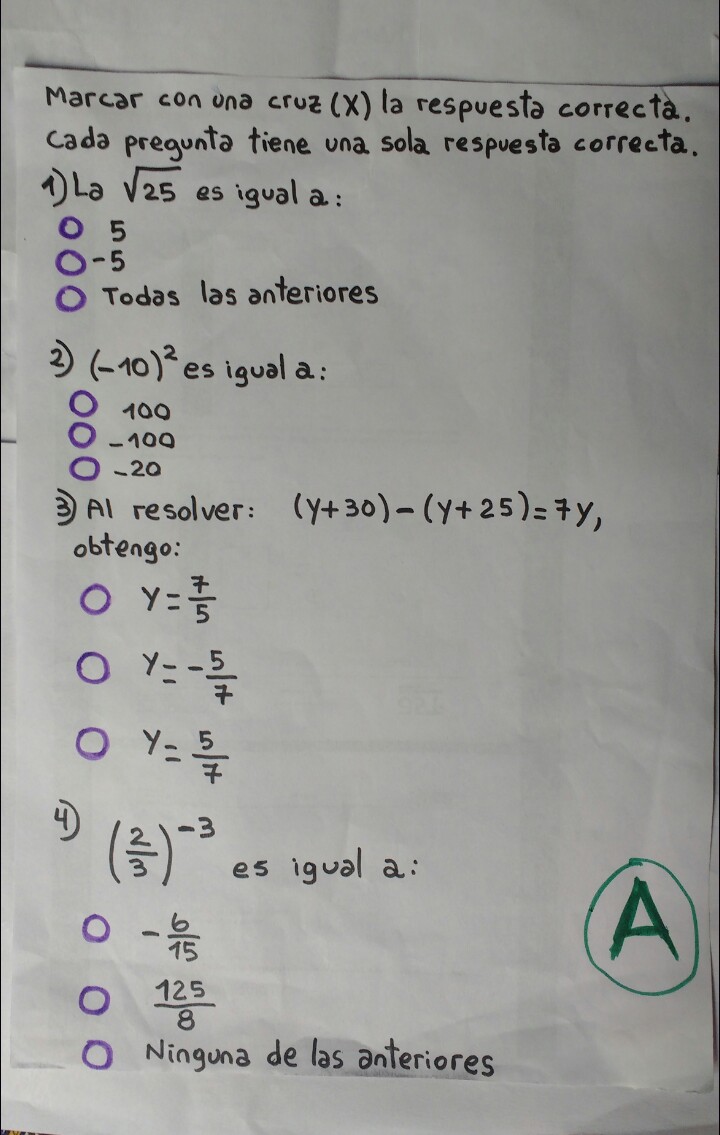 Marcar con una cruz (X) la respuesta correcta.
Cada pregunta tiene una sola respuesta correcta.
1) La √25 es igual a:
5
-5
Todas las anteriores
2) (-10)² es igual a:
100
-100
-20
3) Al resolver: (y+30)-(y+25)=7y,
obtengo:
y=7/5
y=-5/7
y=5/7
4) (2/3)⁻³ es igual a:
-6/15
125/8
Ninguna de las anteriores
A